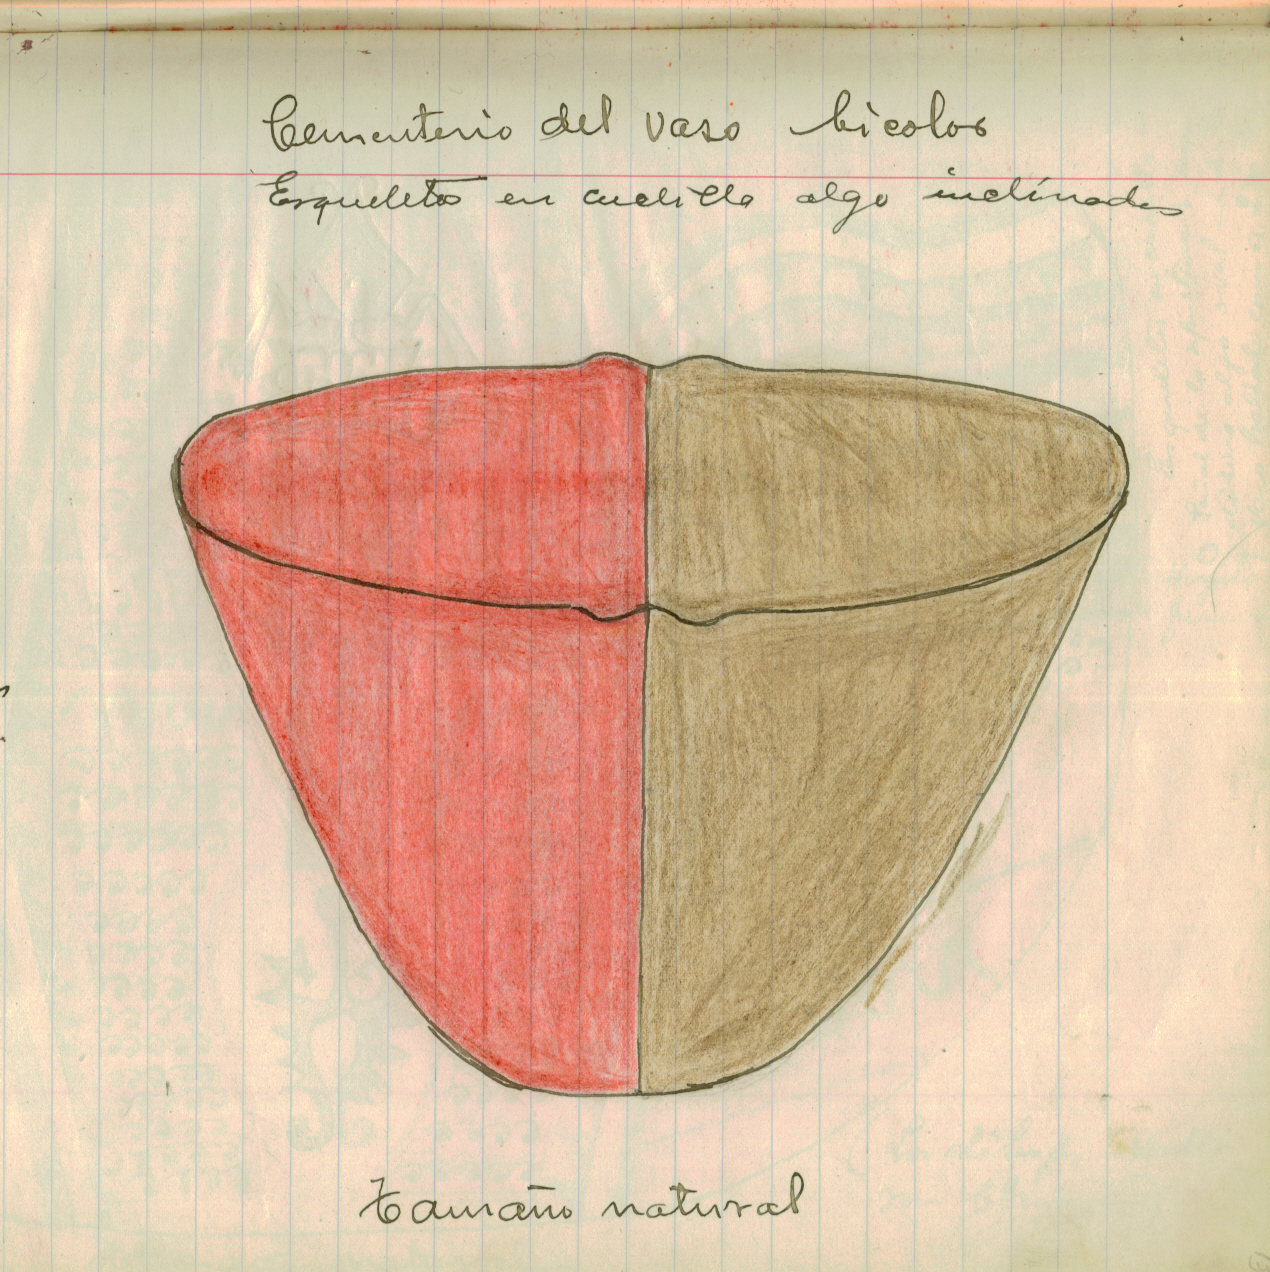 Cementerio del vaso bicolor
Esqueletos en cuclilla algo inclinados
Tamaño natural